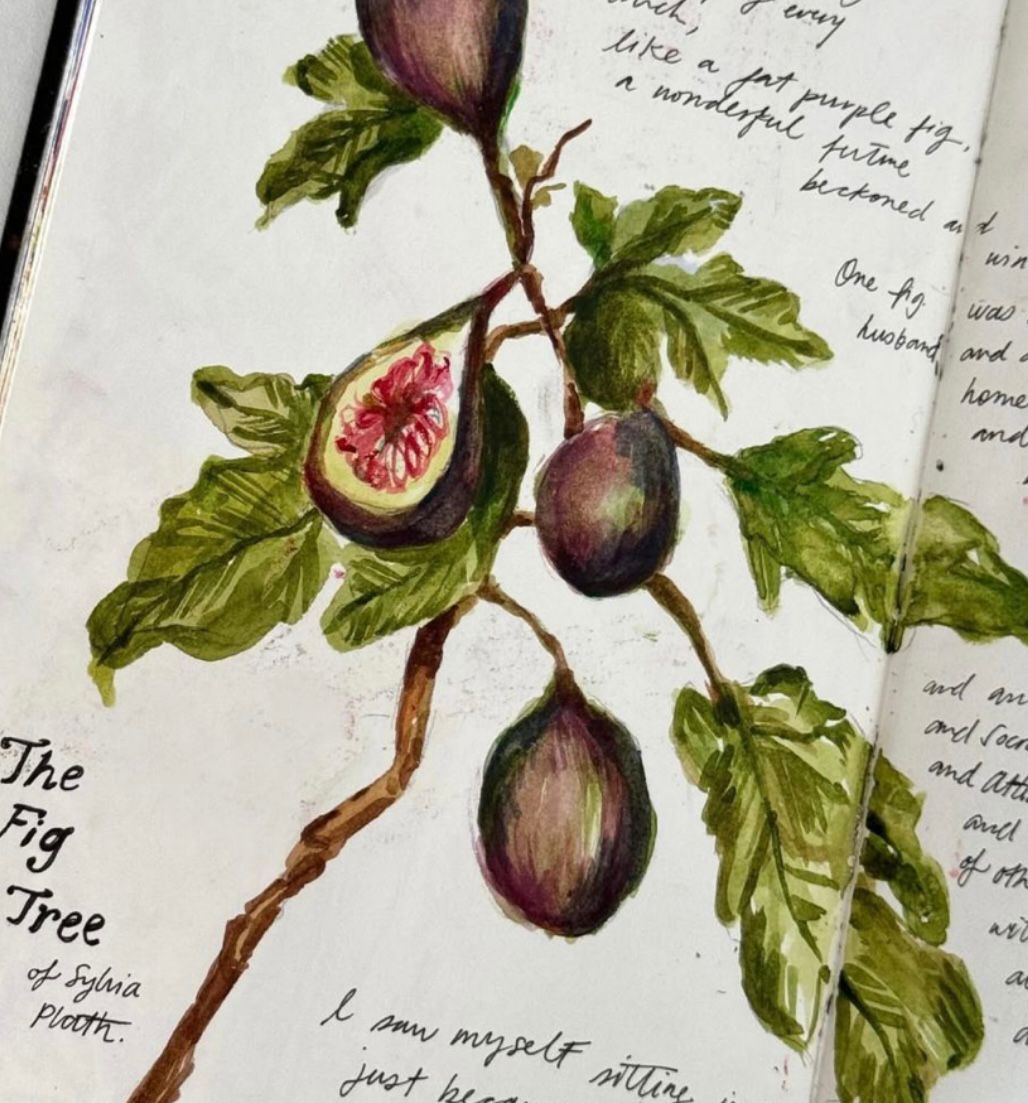 of every
like a fat purple fig,
a wonderful future
beckoned and
One fig
husband
was
and a
home
and
and
and Socr
and Atti
and
of oth
The
Fig
Tree
of Sylvia
Plath.
I saw myself sitting
just beca